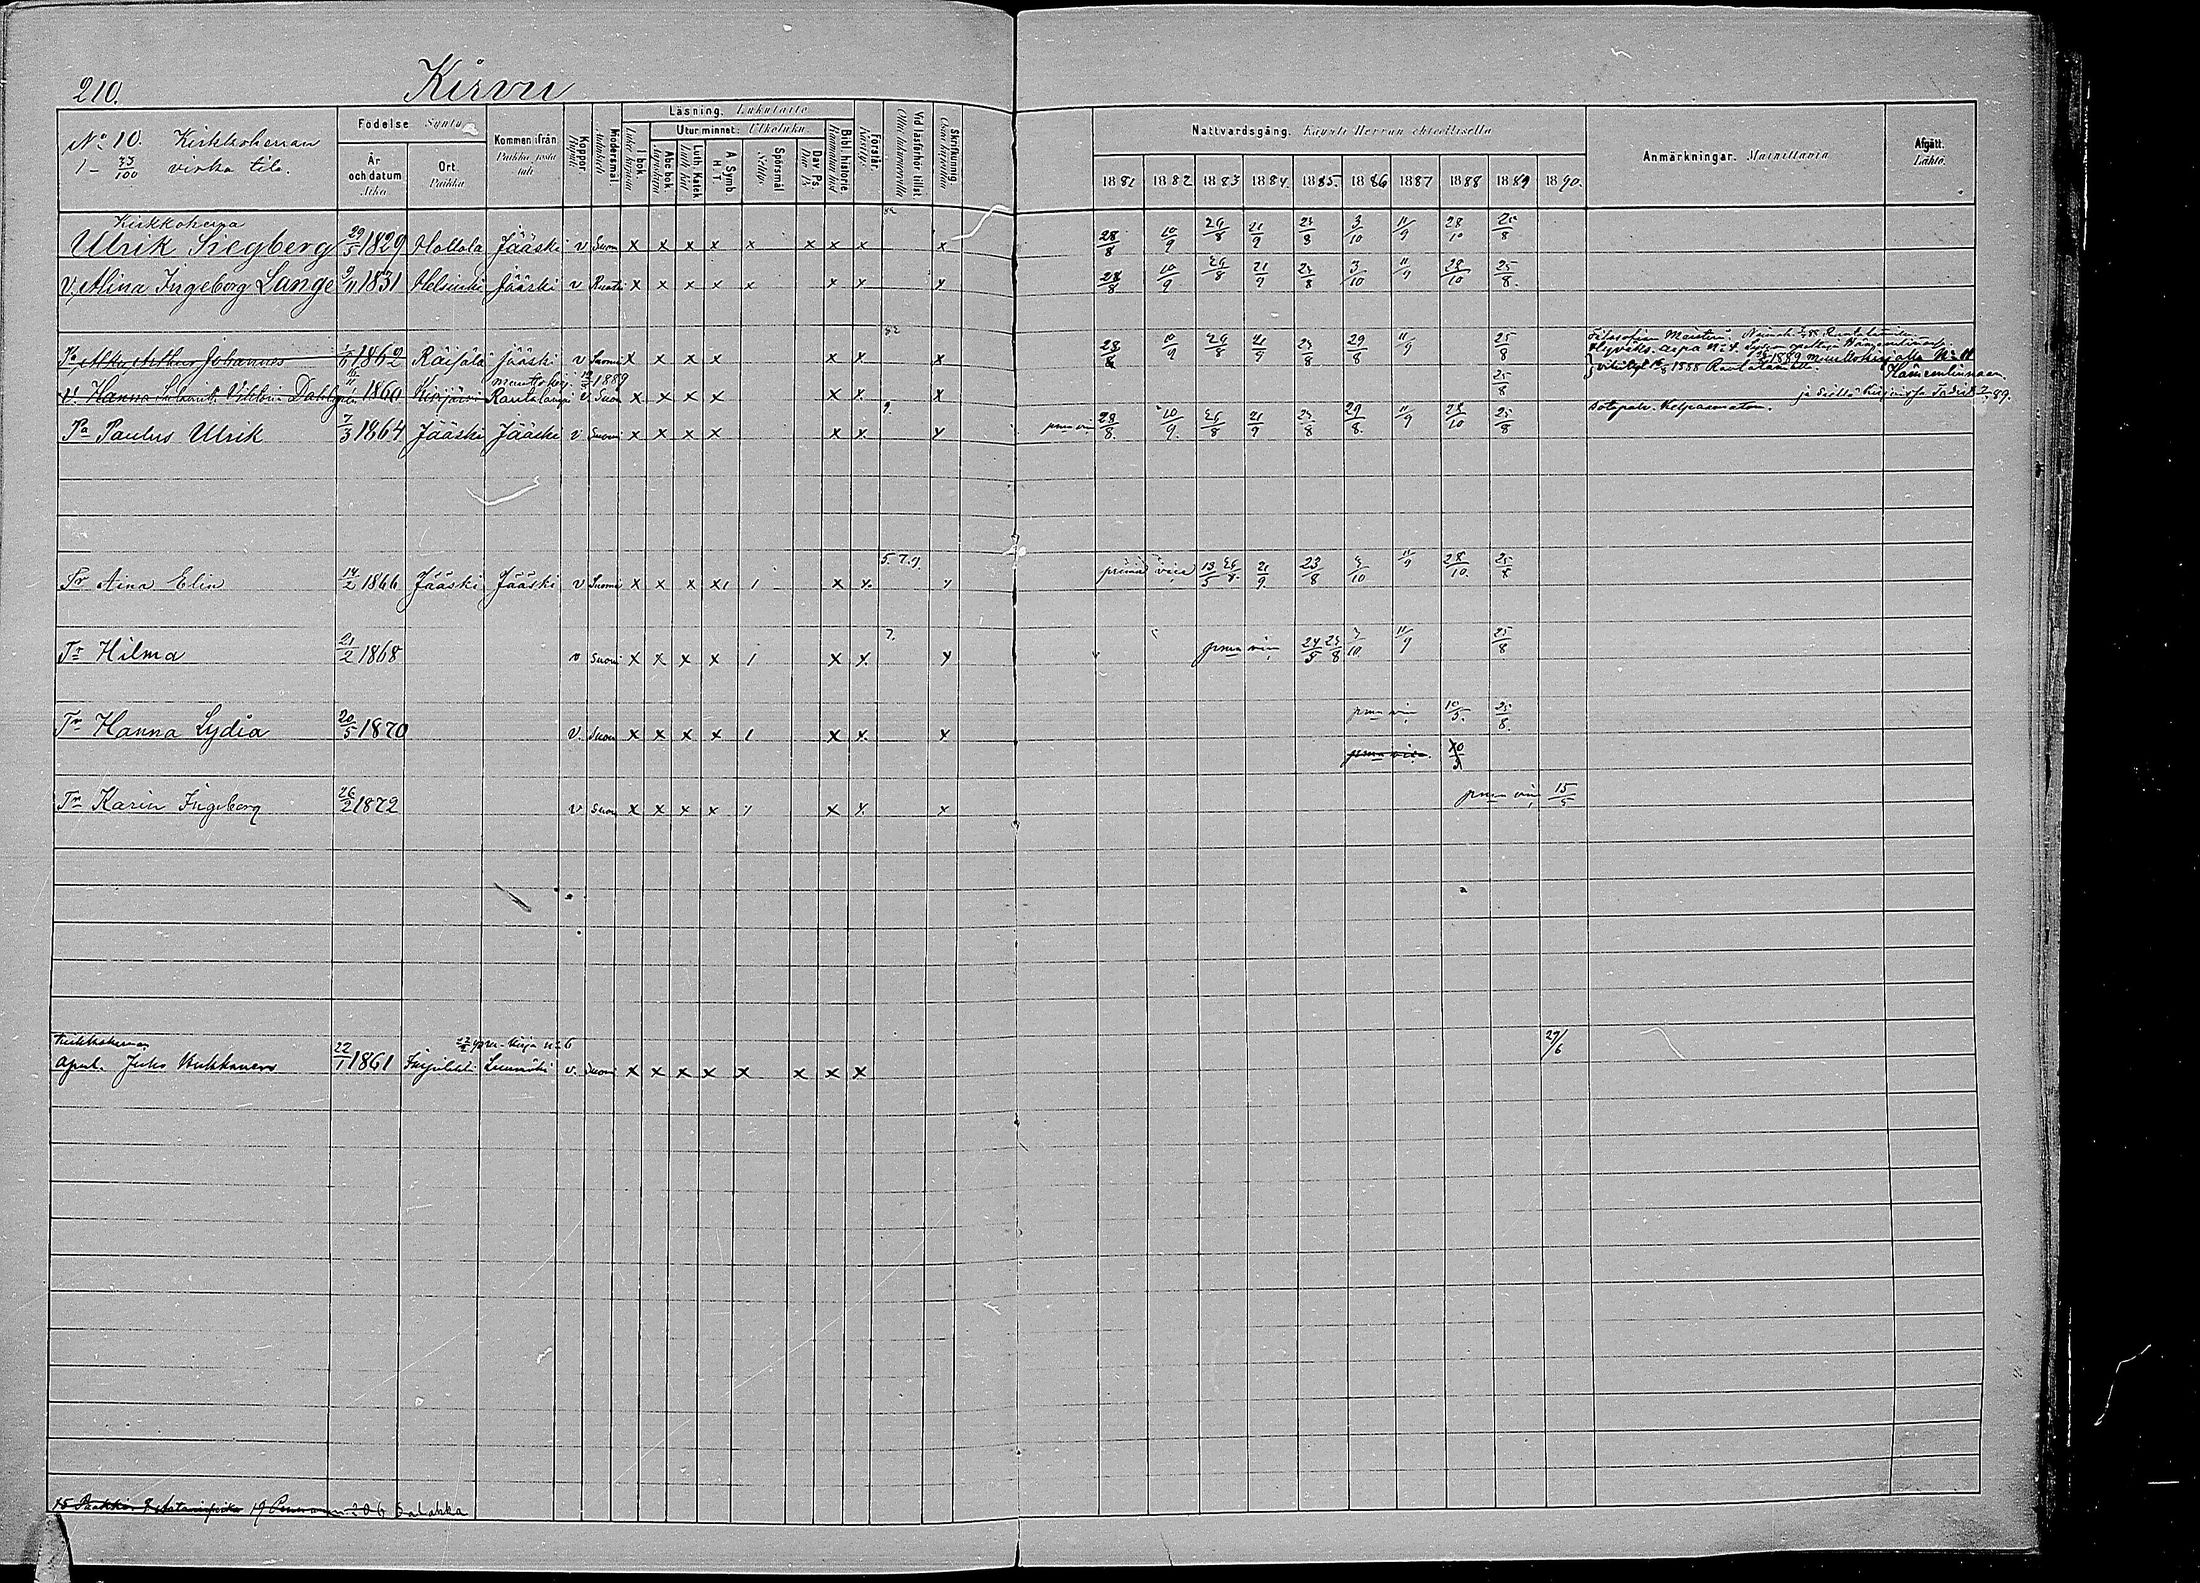 210.
Kirvu
No 10. Kirkkoherran
1 - 23/100 virka tila.
Födelse Synty
År och datum Aika
Ort. Paikka
Kommen ifrån Paikka josta tuli
Koppor. Rupuli
Modersmål. Äidinkieli
Läsning. Lukutaito
I bok Luku kirjassa
Utur minnet: Ulkoluku.
Abc bok Aapiskirja
Luth. Katek
A. Symb H. T.
Spörsmål Selitys
Dav. Ps.
Bibl. historie. Raamatun hist.
Förstår. Käsitys.
Vid läsförhör tillst. Ollut lukuvuorolla
Skrifkunnig Osaa kirjoittaa
Nattvardsgång. Käynti Herran ehtoollisella
1881 1882 1883 1884. 1885. 1886 1887 1888 1889 1890.
Anmärkningar. Mainittavia
Afgått. Lähtö.
Kirkkoherra
Ulrik Siegberg 29/5 1829 Hollola Jääski v Suom x x x x x x x x x 28/8 10/9 26/8 21/9 23/8 3/10 11/9 28/10 25/8
V. Alina Ingeborg Lange 9/11 1831 Helsinki Jääski v Ruotsi x x x x x x x x 28/8 10/9 26/8 21/9 23/8 3/10 11/9 28/10 25/8.
Pa Johannes 1862 Räisälä Jääski v Suomi x x x x x x x 28/8 10/9 26/8 21/9 23/8 29/8 11/9 25/8
Filosofian Maisteri
1888 Rautalammilla
1889 muuttokirj alla No 11
Hämeenlinnaan.
muuttokirj. 1889
v. Hanna Viktoria 1860 Rautalampi v Suom x x x x x x x 25/8
Pa Paulus Ulrik 7/3 1864 Jääski Jääski v Suomi x x x x x x x 28/8 10/9. 26/8 21/9 23/8 29/8. 11/9 28/10 25/8
sotapalv. Kelpaamaton.
Tr Aina Elin 14/2 1866 Jääski Jääski v Suomi x x x x 1 1 x x 5. 7. 9. prima vice 13/5 26/8. 21/9. 23/8 3/10 11/9 28/10. 25/8
Tr Hilma 21/2 1868 v Suomi x x x x 1 x x 7. 24/5 23/8 3/10. 11/9 25/8
Tr Hanna Lydia 20/5 1870 v. Suom x x x x 1 x x x 10/5. 25/8.
Tr Karin Ingeborg 26/2 1872 v Suom x x x x x x x 15/5
Kirkkoherran
apul. Juho 22/1 1861 Luumäki v. Suomi x x x x x x x x 29/6